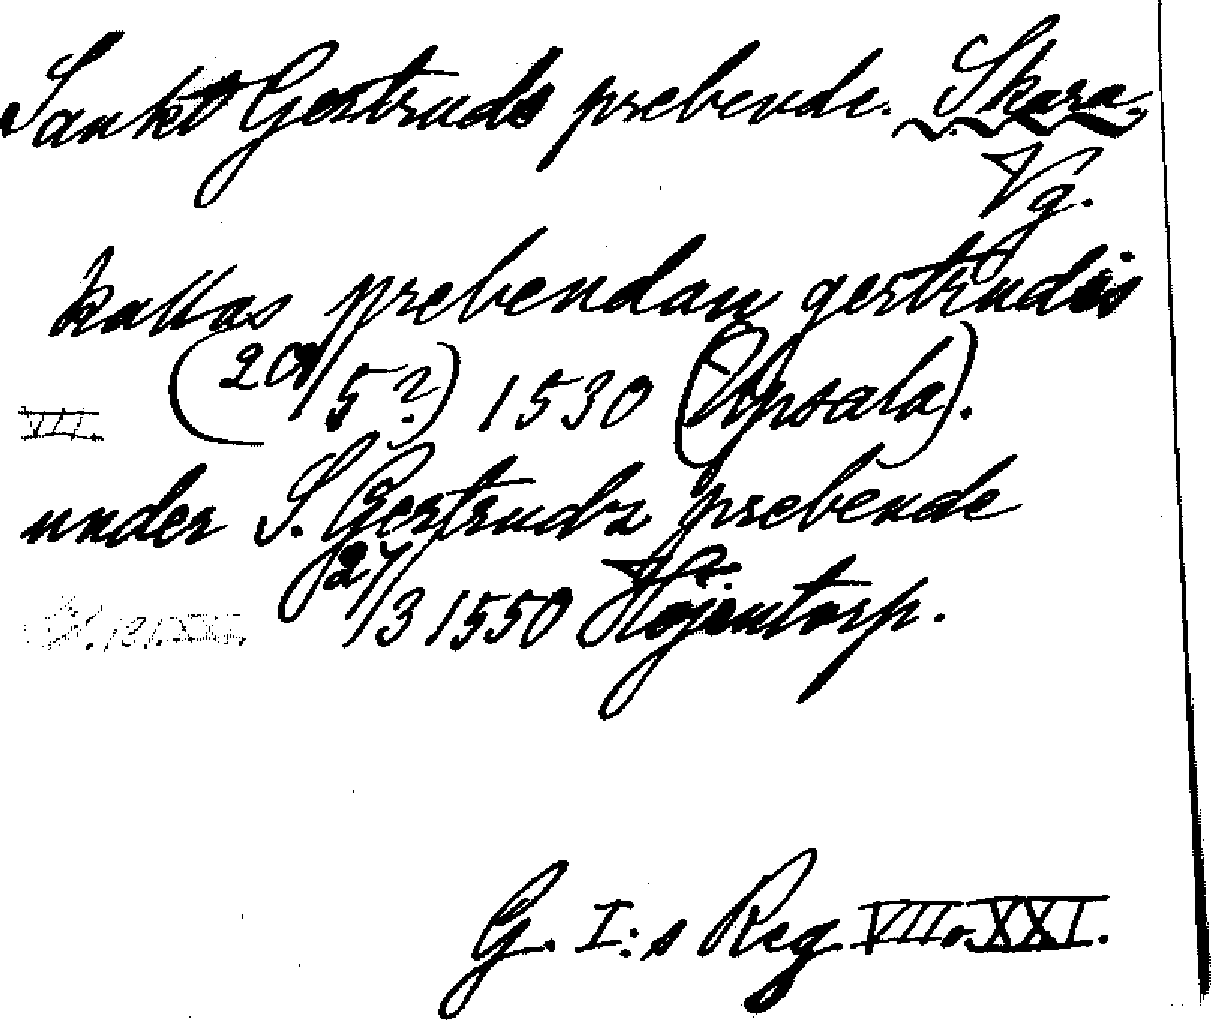 Sankt Gertruds prebende. Skara.
Vg.
kallas prebendan gertrudis
VII (20/5?) 1530 (Upsala).
under S. Gertrudz prebende
27/3 1550 Höjentorp.
G. I:s Reg. VII o. XXI.